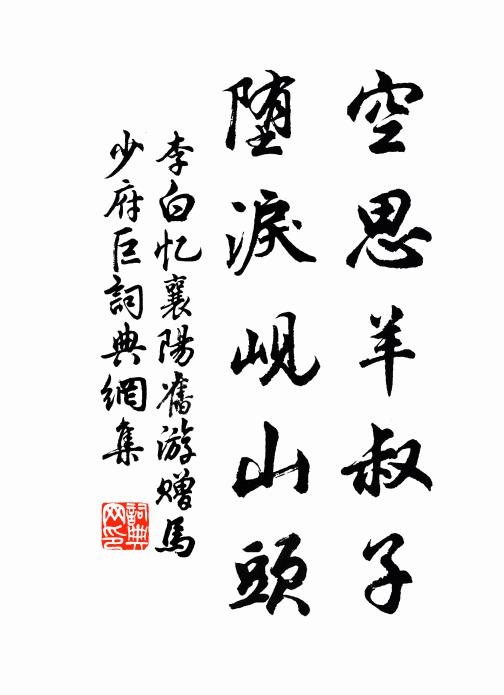 空思羊叔子
堕淚峴山頭
李白忆襄陽舊游赠馬
少府巨詞典網集
詞典网印